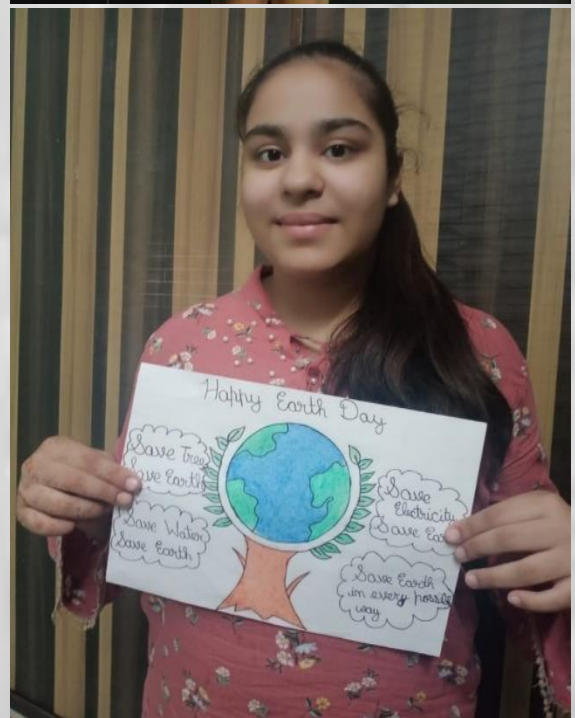 Happy Earth Day
Save Tree
Save Earth
Save Water
Save Earth
Save
Electricity
Save
Save Earth
in every
way